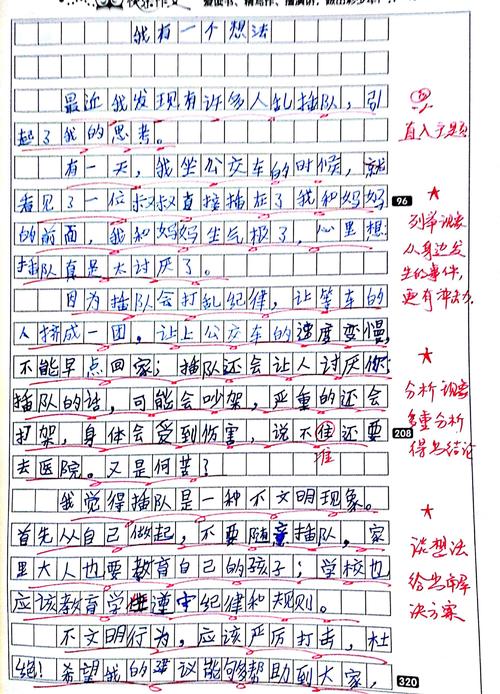 快乐作文
我有一个想法
最近我发现有许多人乱插队，引
起了我的思考。
直入主题
有一天，我坐公交车的时候，就
看见了一位叔叔直接插在了我和妈妈
96
的前面，我和妈妈生气极了，心里想：
插队真是太讨厌了。
列举现象
从身边发
生的事件，
更有冲击力
因为插队会打乱纪律，让等车的
人挤成一团，让上公交车的速度变慢，
不能早点回家；插队还会让人讨厌你；
插队的话，可能会吵架，严重的还会
打架，身体会受到伤害，说不住还要
准
208
去医院。又是何苦？
分析现象
多重分析
得出结论
我觉得插队是一种不文明现象。
首先从自己做起，不要随意插队。家
里大人也要教育自己的孩子；学校也
应该教育学生遵守纪律和规则。
谈想法
给出解
决方案
不文明行为，应该严厉打击，杜
绝！希望我的建议能够帮助到大家，
320